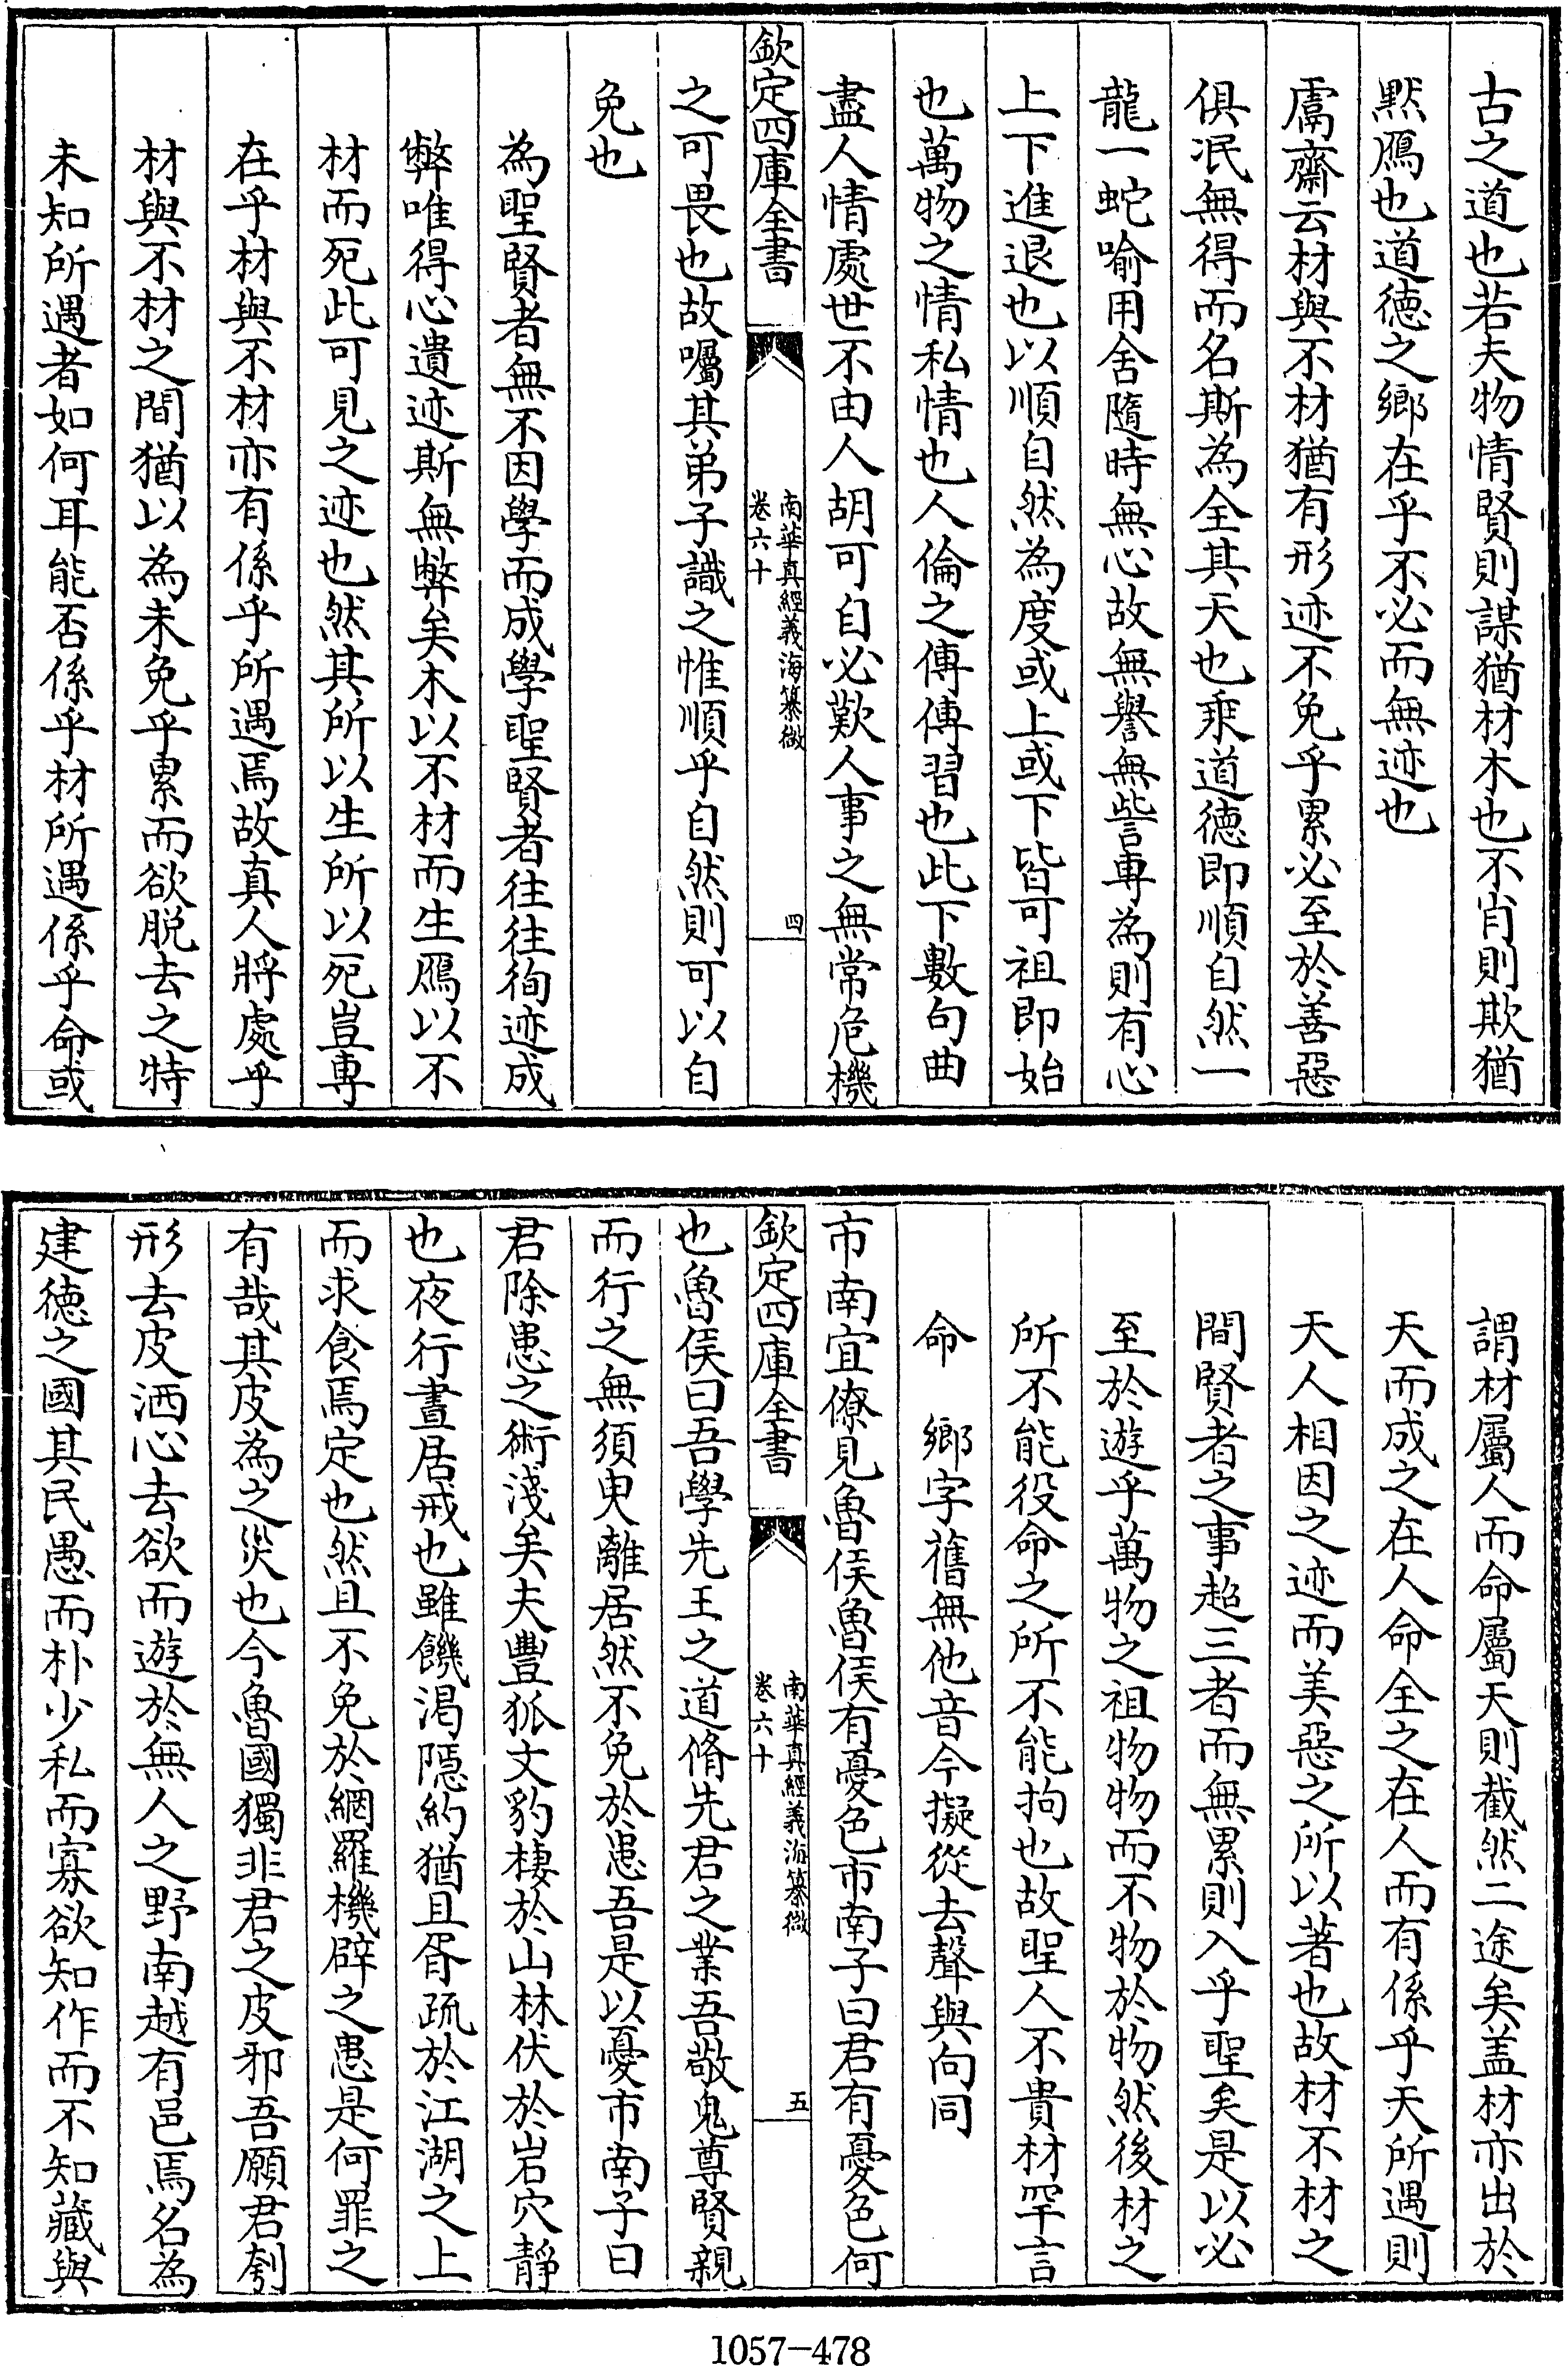 古之道也若夫物情賢則謀猶材木也不肖則欺猶
㸃鴈也道徳之鄉在乎不必而無迹也
鬳齋云材與不材猶有形迹不免乎累必至於善惡
俱泯無得而名斯為全其天也乘道徳即順自然一
龍一蛇喻用舍隨時無心故無譽無訾專為則有心
上下進退也以順自然為度或上或下皆可祖即始
也萬物之情私情也人倫之傳傳習也此下數句曲
盡人情處世不由人胡可自必歎人事之無常危機
欽定四庫全書
南華真經義海纂微
卷六十
四
之可畏也故囑其弟子識之惟順乎自然則可以自
免也
為聖賢者無不因學而成學聖賢者往往徇迹成
弊唯得心遺迹斯無弊矣木以不材而生鴈以不
材而死此可見之迹也然其所以生所以死豈專
在乎材與不材亦有係乎所遇焉故真人將處乎
材與不材之間猶以為未免乎累而欲脱去之特
未知所遇者如何耳能否係乎材所遇係乎命或
謂材屬人而命屬天則截然二途矣盖材亦出於
天而成之在人命全之在人而有係乎天所遇則
天人相因之迹而美惡之所以著也故材不材之
間賢者之事超三者而無累則入乎聖矣是以必
至於遊乎萬物之祖物物而不物於物然後材之
所不能役命之所不能拘也故聖人不貴材罕言
命　鄉字舊無他音今擬從去聲與向同
市南宜僚見魯侯魯侯有憂色市南子曰君有憂色何
欽定四庫全書
南華真經義海纂微
卷六十
五
也魯侯曰吾學先王之道脩先君之業吾敬鬼尊賢親
而行之無須臾離居然不免於患吾是以憂市南子曰
君除患之術淺矣夫豐狐文豹棲於山林伏於岩穴靜
也夜行晝居戒也雖饑渴隱約猶且胥疏於江湖之上
而求食焉定也然且不免於網羅機辟之患是何罪之
有哉其皮為之災也今魯國獨非君之皮邪吾願君刳
形去皮洒心去欲而遊於無人之野南越有邑焉名為
建徳之國其民愚而朴少私而寡欲知作而不知藏與
1057-478